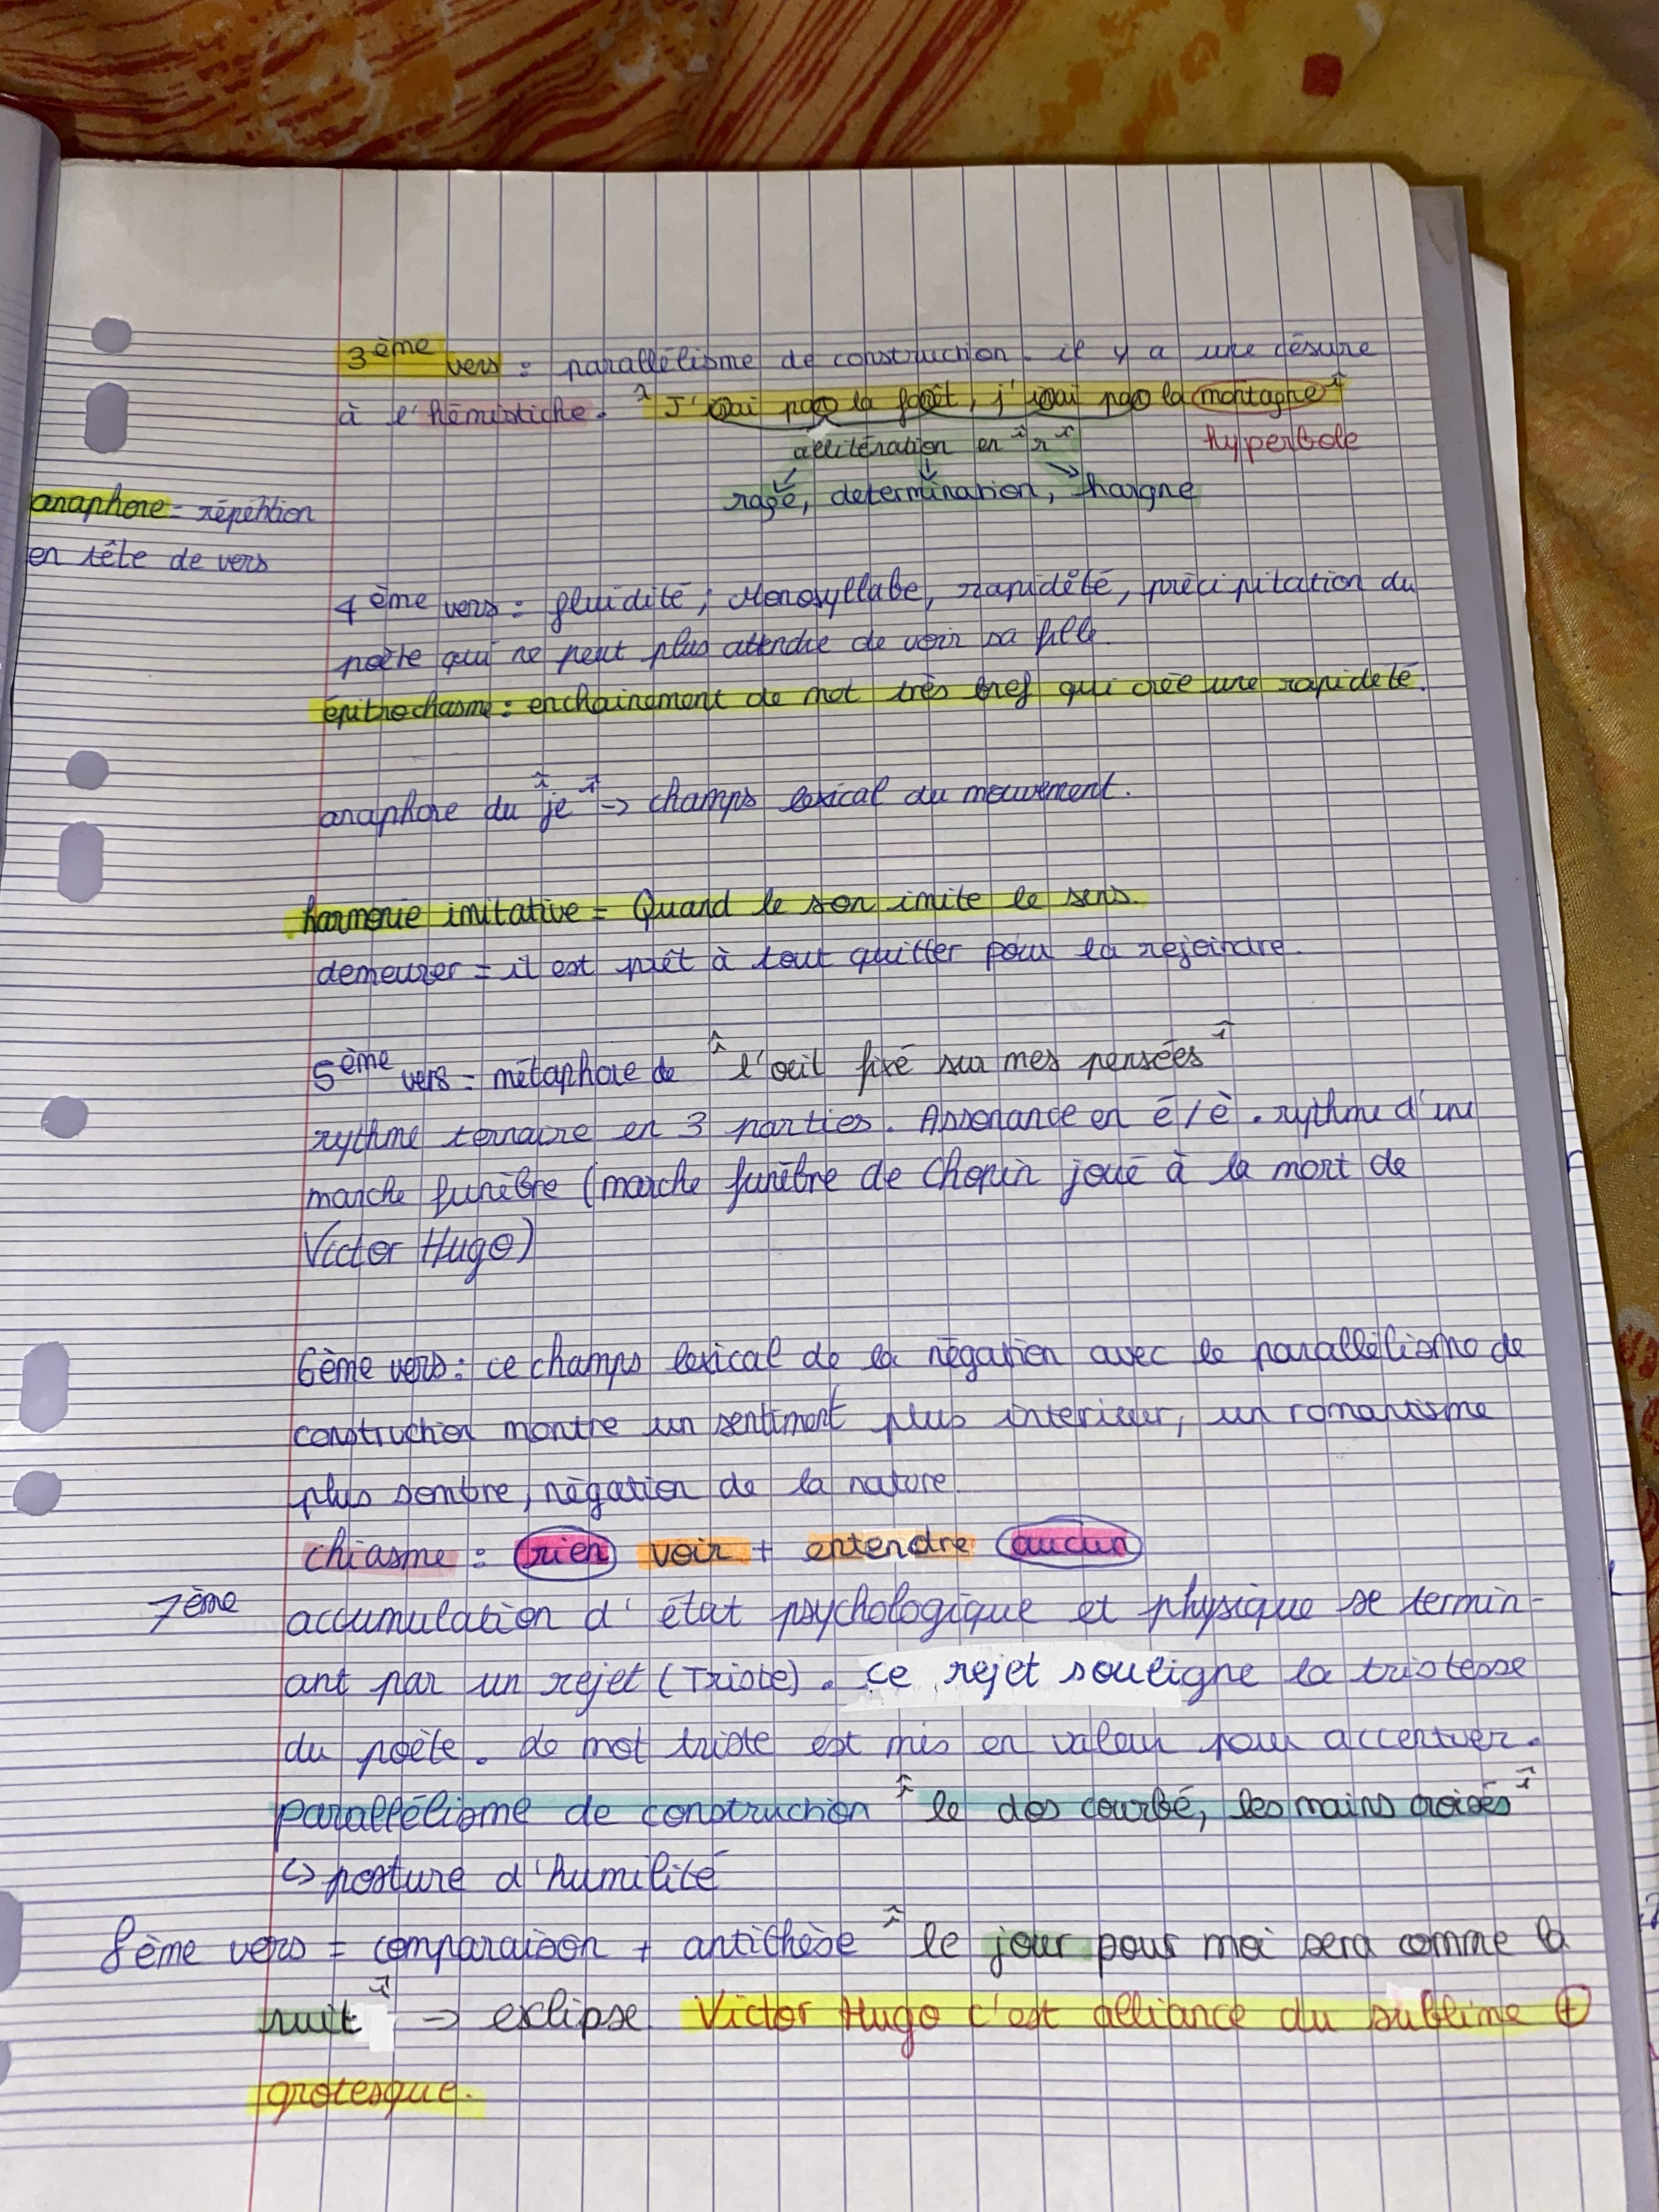 3ème vers : parallélisme de construction. il y a une césure
à l'hémistiche. "J'irai par la forêt, j'irai par la montagne"
allitération en "r" hyperbole
rage, determination, hargne
anaphore = répétition
en tête de vers
4ème vers : fluidité, Monosyllabe, rapidité, précipitation du
poète qui ne peut plus attendre de voir sa fille.
épitrochasme : enchainement de mot très bref qui crée une rapideté.
anaphore du "je" -> champs lexical du mouvement.
harmonie imitative = Quand le son imite le sens.
demeurer = il est prêt à tout quitter pour la rejoindre.
5ème vers = métaphore de "l'oeil fixé sur mes pensées"
rythme ternaire en 3 parties. Assonance en é/è. rythme d'une
marche funèbre (marche funèbre de Chopin joué à la mort de
Victor Hugo)
6ème vers : ce champs lexical de la négation avec le parallélisme de
construction montre un sentiment plus interieur, un romantisme
plus sombre, négation de la nature.
chiasme : rien voir + entendre aucun
7ème accumulation d'état psychologique et physique se termin-
ant par un rejet (Triste). Ce rejet souligne la tristesse
du poète. Le mot triste est mis en valeur pour accentuer.
parallélisme de construction "le dos courbé, les mains croisés"
↳ posture d'humilité
8ème vers = comparaison + antithèse "le jour pour moi sera comme la
nuit" -> eclipse. Victor Hugo c'est alliance du sublime ⊕
grotesque.